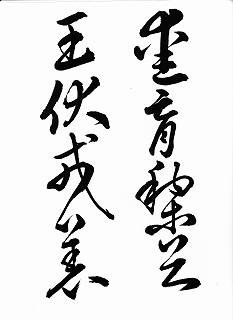 愛育黎首
臣伏戎羌